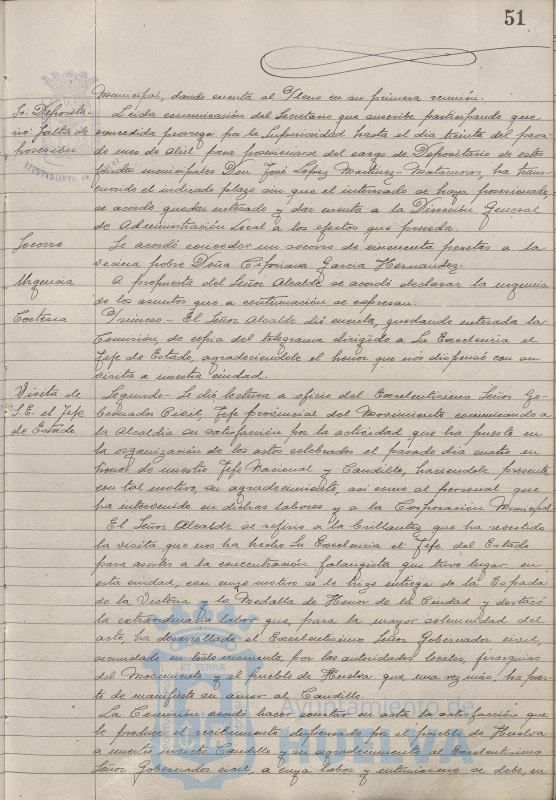 51
Municipal, dando cuenta al Pleno en su primera reunión.
Sr. Deposita- Leída comunicación del Secretario que suscribe participando que
rio: falta de concedida prórroga por la Superioridad hasta el día treinta del pasa-
posesión do mes de Abril para posesionarse del cargo de Depositario de estos
fondos municipales Don José López Martínez-Matamoros, ha trans-
currido el indicado plazo sin que el interesado se haya posesionado,
se acordó quedar enterado y dar cuenta a la Dirección General
de Administración Local a los efectos que proceda.
Socorro Se acordó conceder un socorro de cincuenta pesetas a la
vecina pobre Doña Cipriana García Hernández.
Urgencia A propuesta del Señor Alcalde se acordó declarar la urgencia
de los asuntos que a continuación se expresan:
Cortesía Primero.- El Señor Alcalde dió cuenta, quedando enterada la
Comisión, de copia del telegrama dirigido a Su Excelencia el
Jefe de Estado, agradeciéndole el honor que nos dispensó con su
visita a nuestra ciudad.
Visita de Segundo.- Se dió lectura a oficio del Excelentísimo Señor Go-
S.E. el Jefe bernador Civil, Jefe provincial del Movimiento comunicando a
de Estado la Alcaldía su satisfacción por la actividad que ha puesto en
la organización de los actos celebrados el pasado día cuatro en
honor de nuestro Jefe Nacional y Caudillo, haciéndole presente
con tal motivo, su agradecimiento, así como al personal que
ha intervenido en dichas labores y a la Corporación Municipal.
El Señor Alcalde se refirió a la brillantez que ha revestido
la visita que nos ha hecho Su Excelencia el Jefe del Estado
para asistir a la concentración falangista que tuvo lugar en
esta ciudad, con cuyo motivo se le hizo entrega de la Espada
de la Victoria y la Medalla de Honor de la Ciudad y destacó
la extraordinaria labor que, para la mayor solemnidad del
acto, ha desarrollado el Excelentísimo Señor Gobernador civil,
secundado en todo momento, por las autoridades locales, jerarquías
del Movimiento y el pueblo de Huelva que, una vez más, ha pues-
to de manifiesto su amor al Caudillo.
La Comisión acordó hacer constar en acta la satisfacción que
le produce el recibimiento dispensado por el pueblo de Huelva
a nuestro invicto Caudillo y su agradecimiento al Excelentísimo
Señor Gobernador civil, a cuya labor y entusiasmo se debe, en
Ayuntamiento de
HUELVA